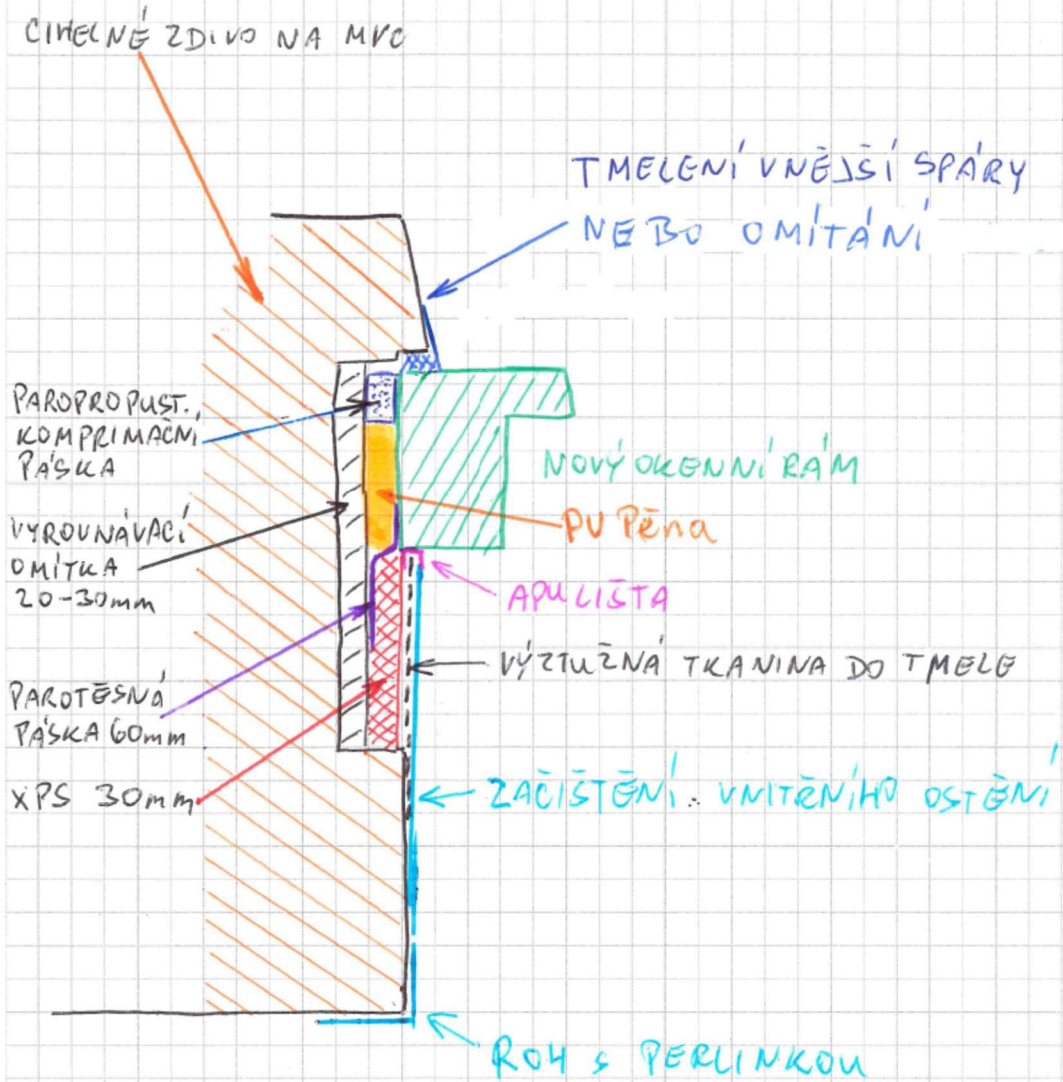 CIHELNÉ ZDIVO NA MVC
TMELENÍ VNĚJŠÍ SPÁRY
NEBO OMÍTÁNÍ
PAROPROPUST.
KOMPRIMAČNÍ
PÁSKA
NOVÝ OKENNÍ RÁM
PU PĚna
VYROVNÁVACÍ
OMÍTKA
20-30mm
APU LIŠTA
VÝZTUŽNÁ TKANINA DO TMELE
PAROTĚSNÁ
PÁSKA 60mm
XPS 30mm
ZAČIŠTĚNÍ VNITŘNÍHO OSTĚNÍ
ROH S PERLINKOU